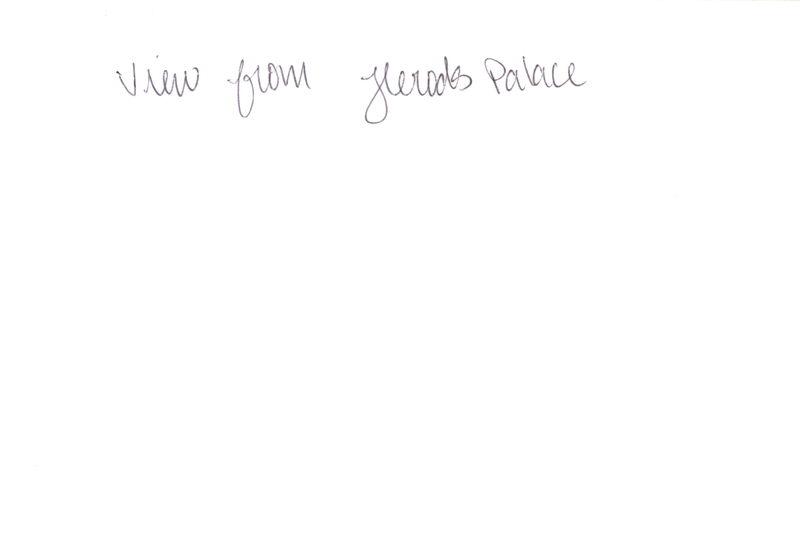 View from Herods Palace